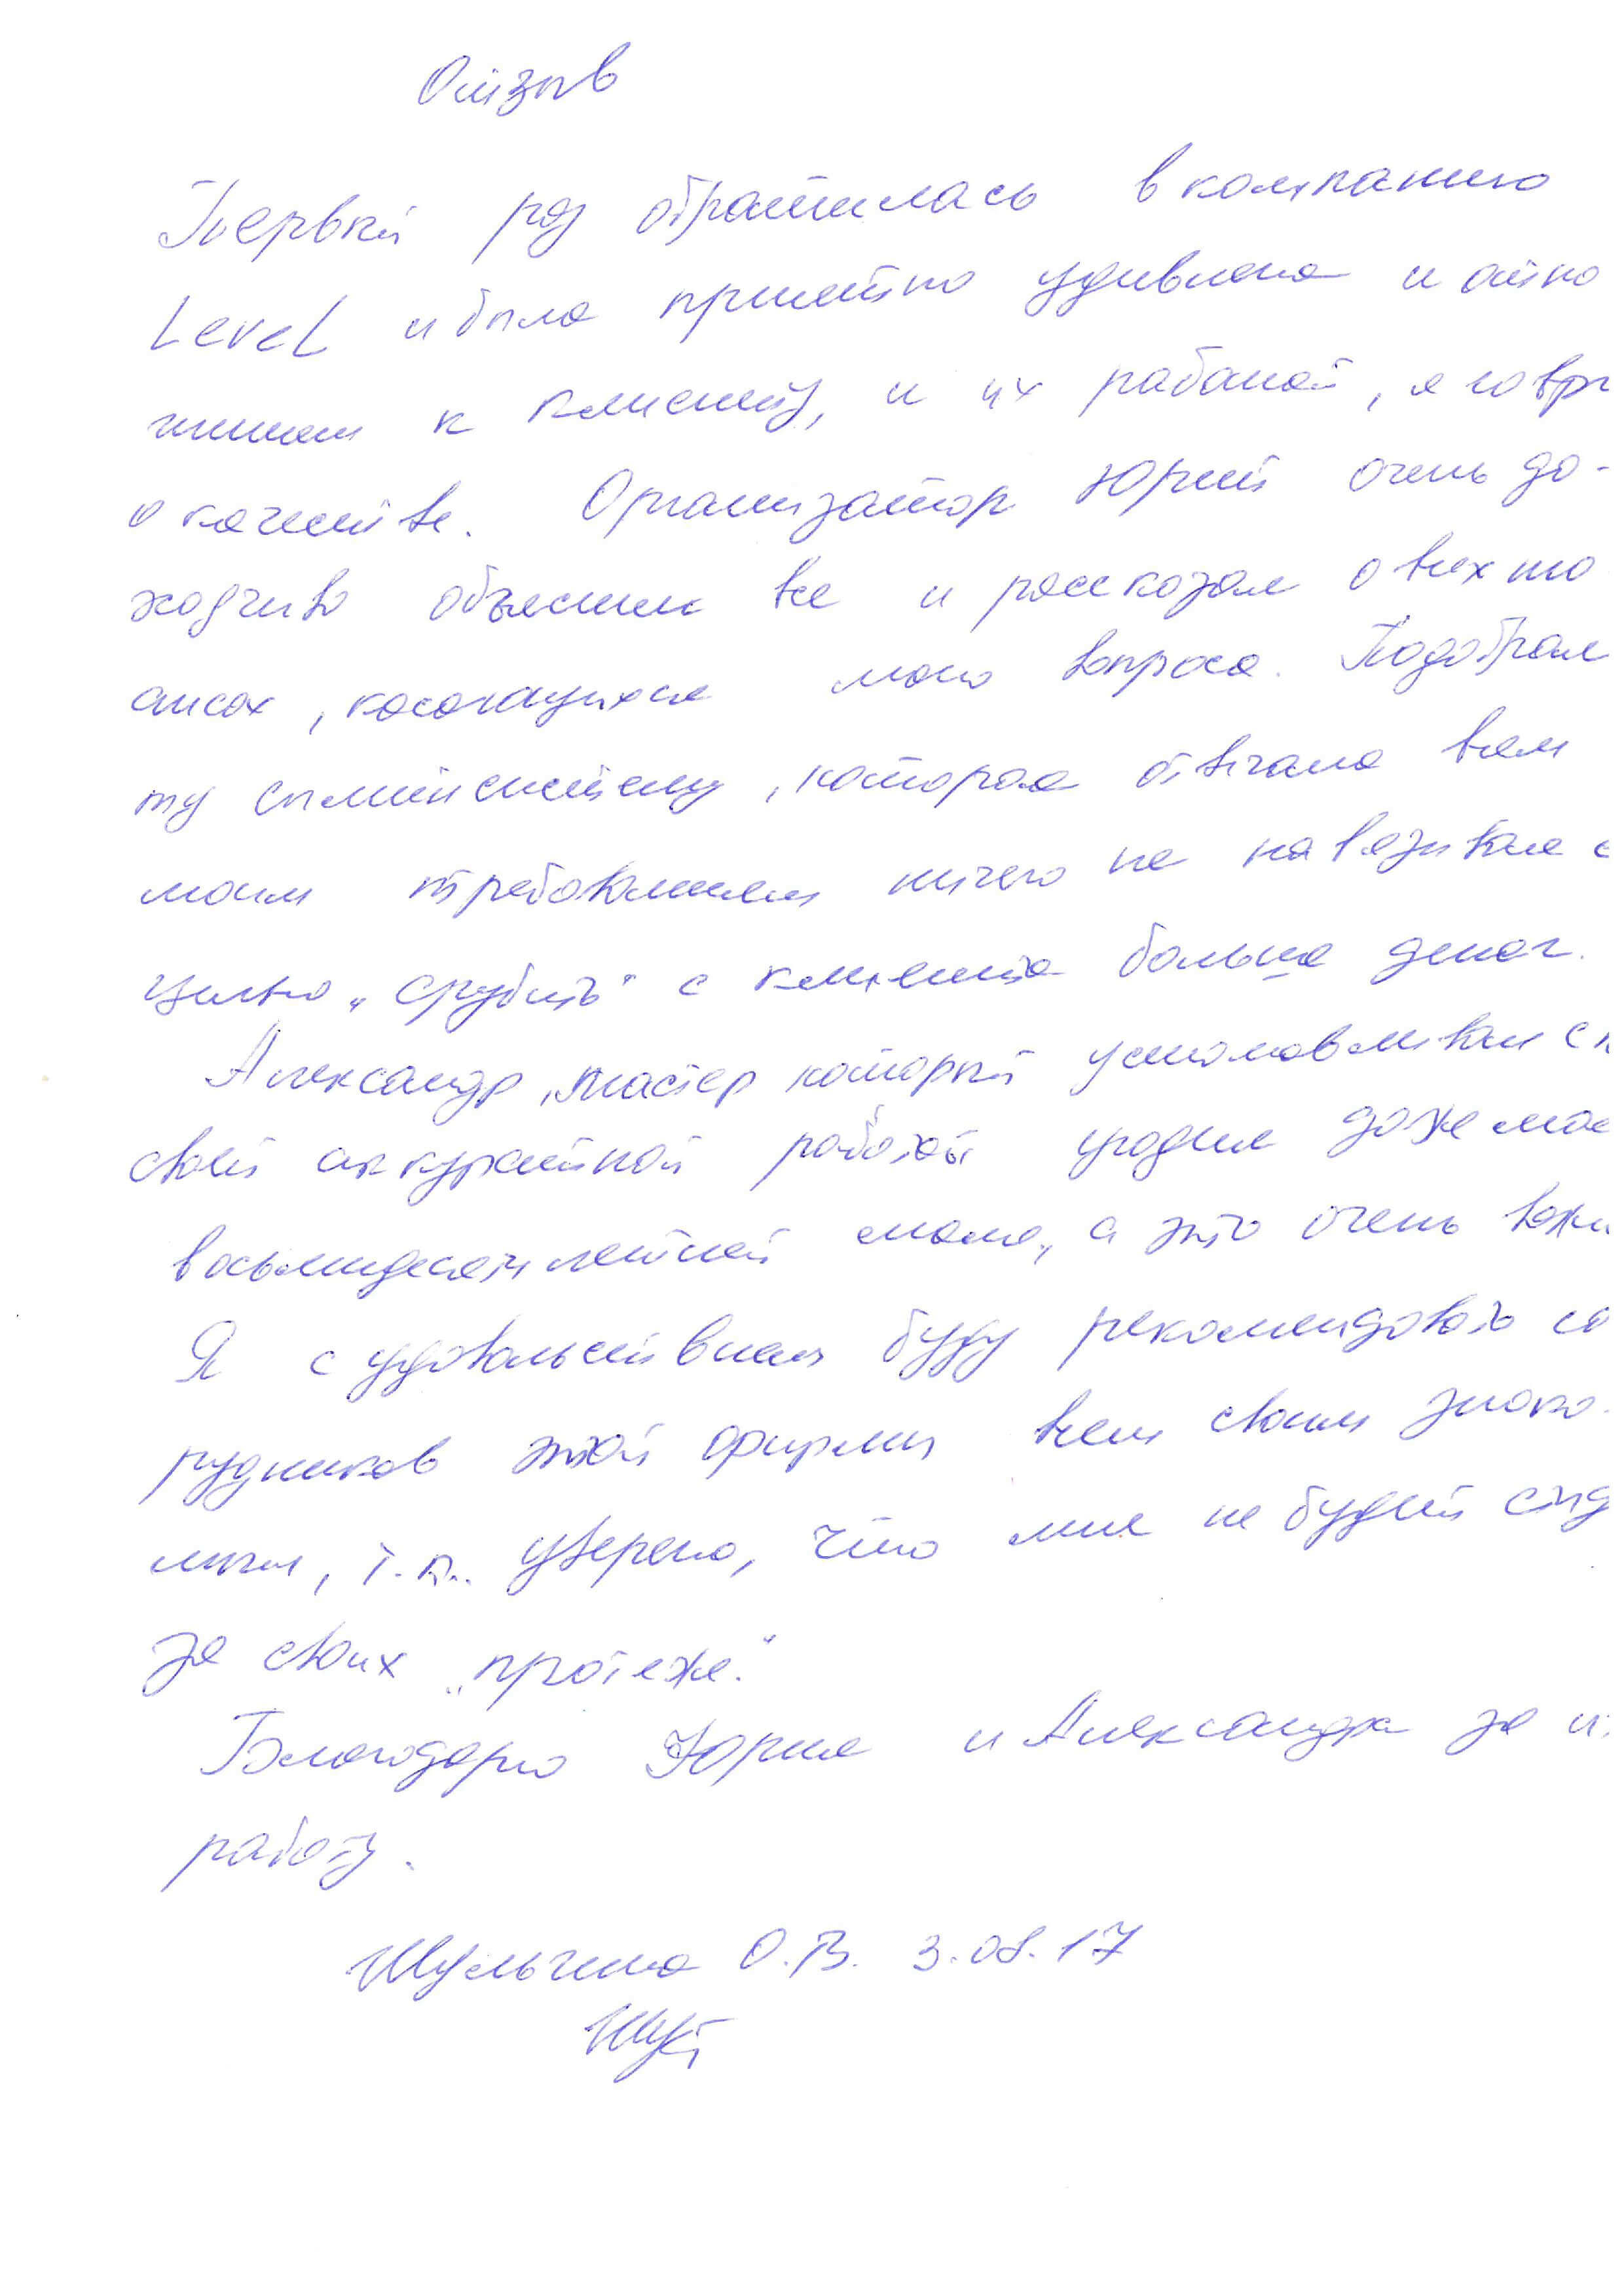 Отзыв
Первый раз обратилась в компанию
Level и была приятно удивлена и отно
шением к клиенту, и их работой, я говр
о качестве. Организатор Юрий очень до-
ходчиво объяснил все и рассказал о всех ню
ансах, касающихся моего вопроса. Подобрал
ту сплит систему, которая отвечала всем
моим требованиям ничего не навязывая с
целью "срубить" с клиента больше денег.
Александр, мастер который устанавливал с
своей аккуратной работой угодил даже мое
восьмидесятилетней маме, а это очень важн
Я с удовольствием буду рекомендовать со
рудников этой фирмы всем своим знако-
мым, т.к. уверена, что мне не будет стыд
за своих "протеже".
Благодарю Юрия и Александра за и
работу.
Шульгина О.В. 3.08.17